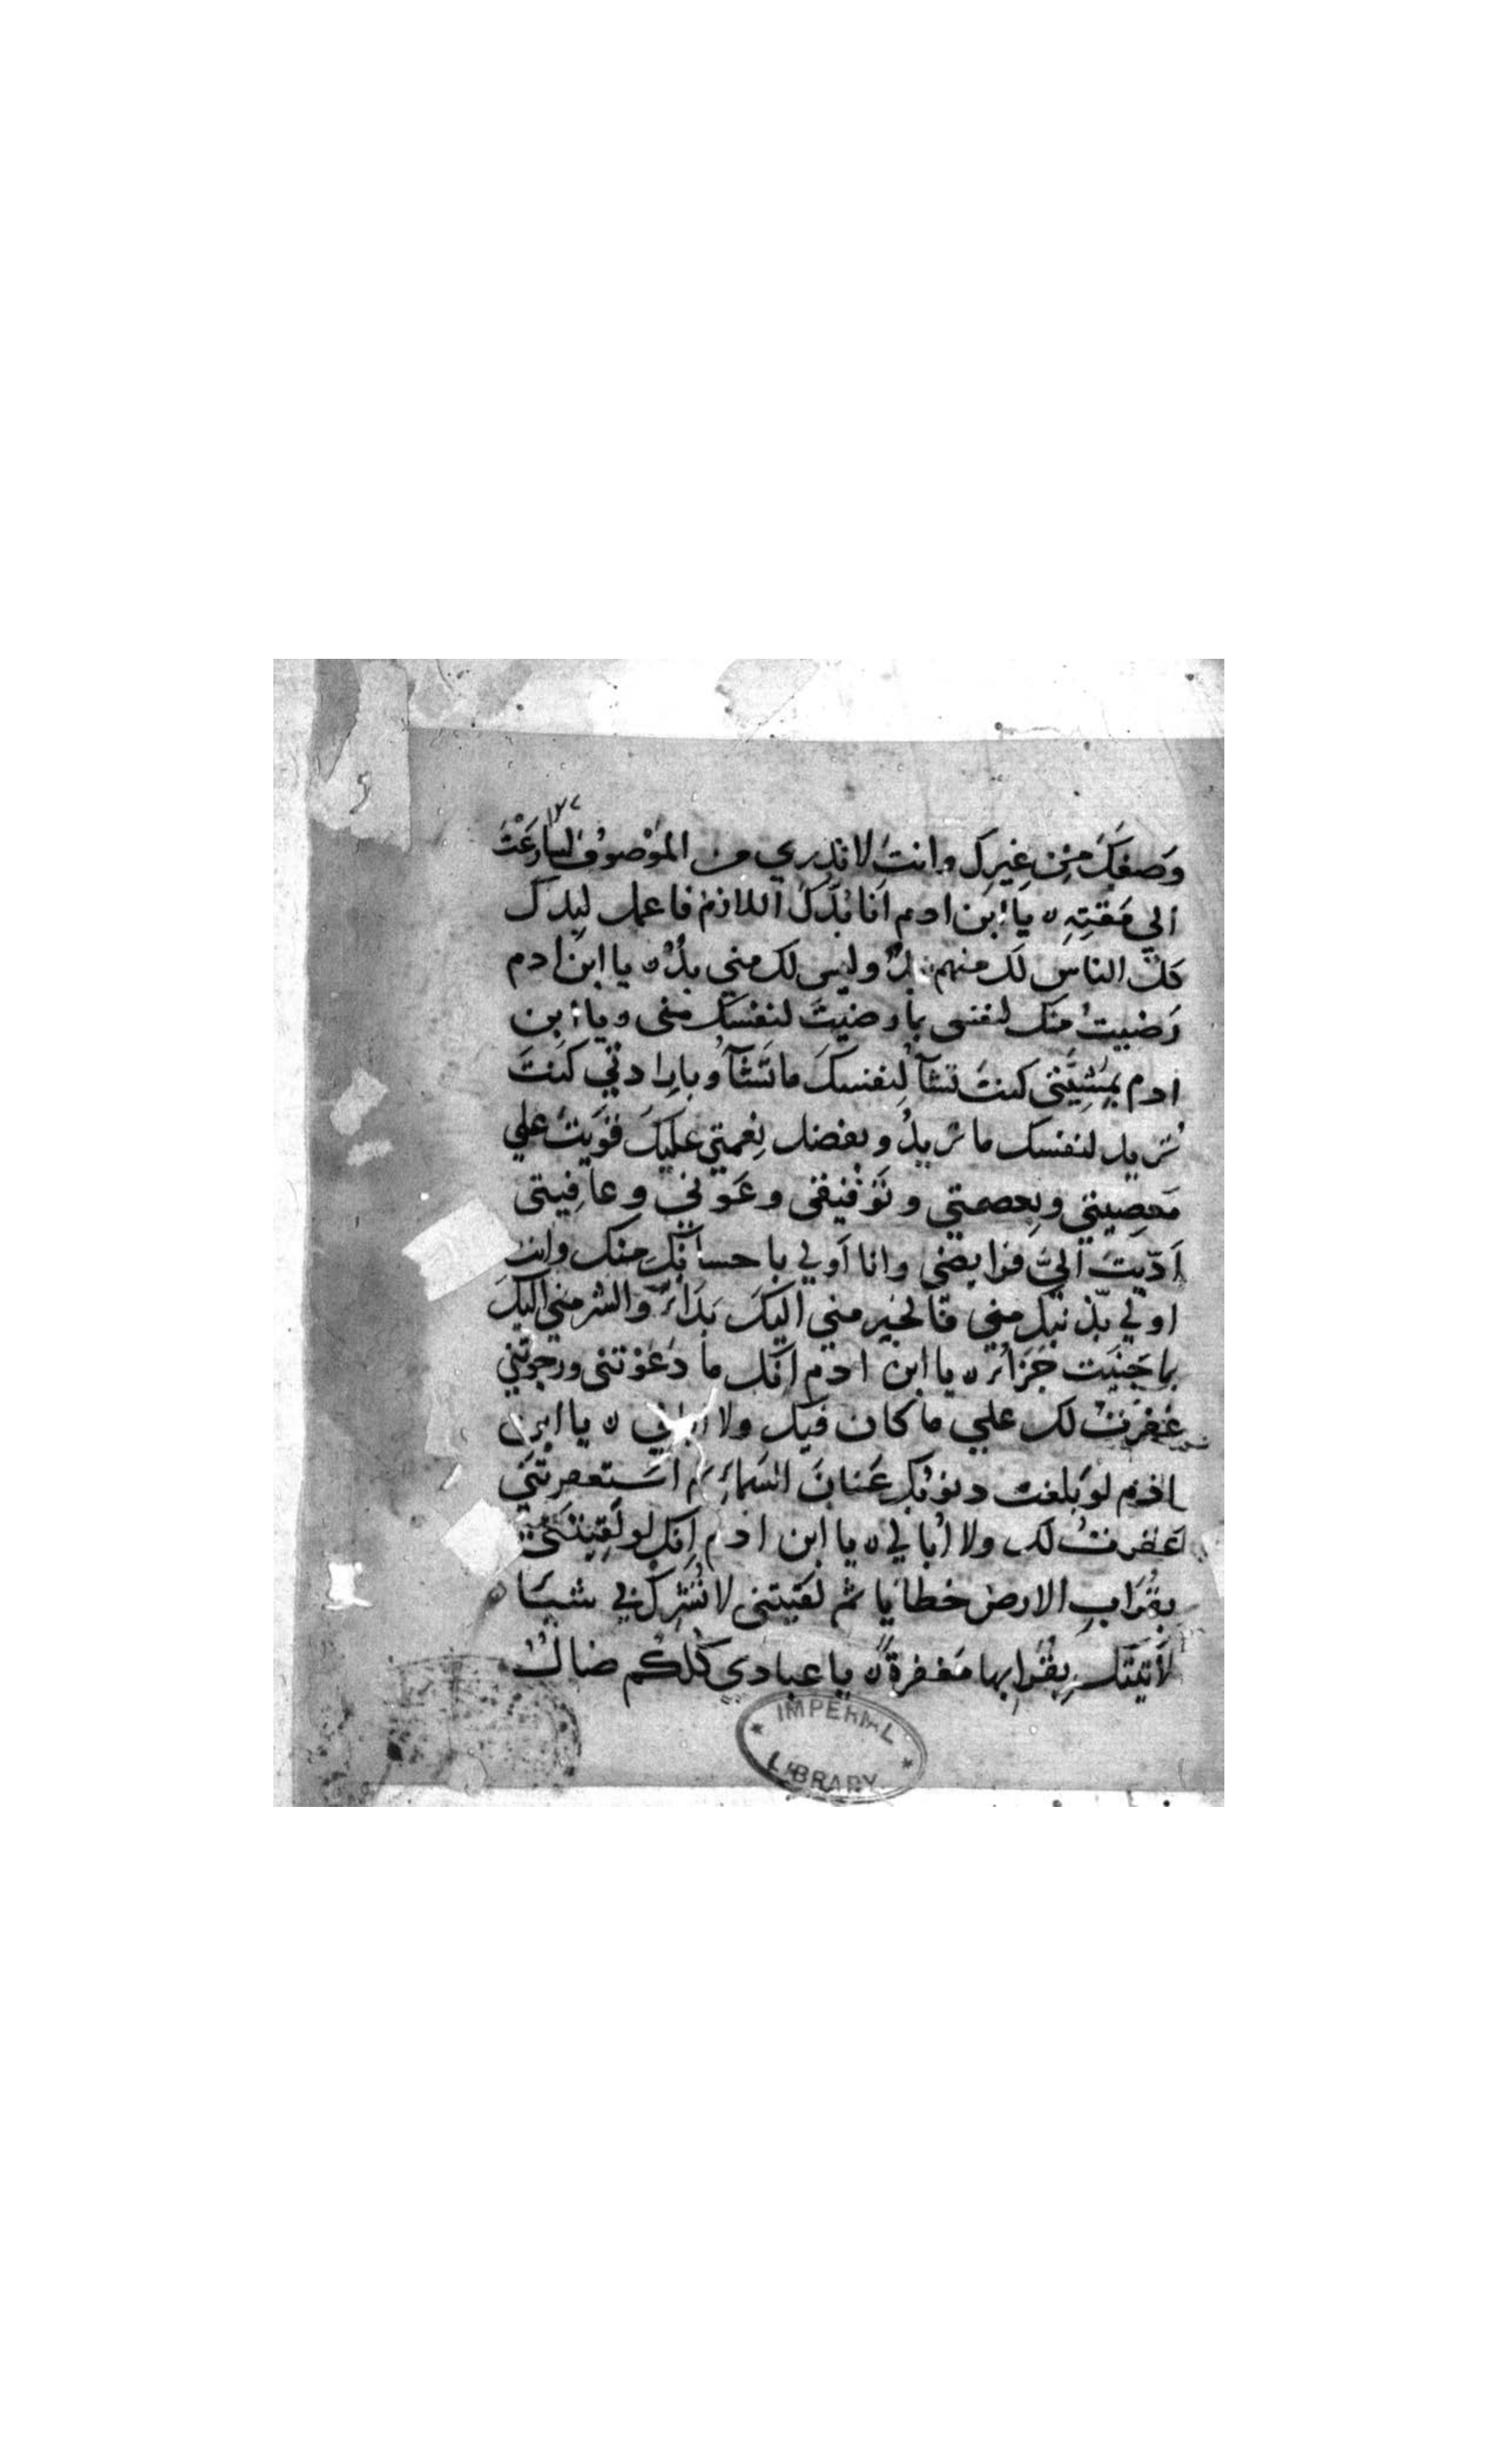 ١٢٧
وَصفَكَ مِن غيرِك وانتَ لا تدري من المَوْصوفُ لسارَعْتَ
الي مَقتِهِ ٥ يا ابن ادم انا بُدُّكَ اللازم فاعمل لبدك
كلّ الناس لك منهم بدٌ وليس لك مني بدٌ ٥ يا ابن ادم
رَضيتُ منك لنفسى ما رضيتَ لنفسك منى ويا ابن
ادم بمشِيَّتى كنتَ تشآ لِنفسكَ ما تَشَآ وُبارادتي كنتَ
تريد لنفسك ما تريدُ وبفضل نِعمتي عليكَ قَوِيتَ علي
مَعصِيتي وبِعصمتي وتَوْفيقى وعَوني وعافِيتى
اَدّيتَ اليَّ فرايضى وانا اَولي باحسانك منك وانت
اولي بذنبك منى فالخير مني اليكَ بَدَاءٌ والشر مني اليكَ
بما جَنَيت جَزَاءٌ ٥ يا ابن ادم انك ما دَعَوْتنى ورجوتني
غفرتُ لك علي ما كان فيك ولا ابالي ٥ يا ابن
ادم لو بَلغت ذنوبُك عَنانَ السَماءِ ثم استغفرتَنى
غفرتُ لك ولا اُبالي ٥ يا ابن ادم اِنك لو لَقِيتَنى
بِقُرَابِ الارض خطايا ثم لقيتنى لا تُشرِكُ بي شيئا
لأتيتك بِقُرابها مَغفرةً ٥ يا عبادي كُلكُم ضالٌ
IMPERIAL
LIBRARY